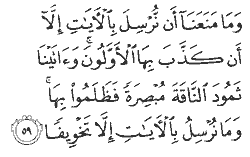 وَمَا مَنَعَنَآ أَن نُّرْسِلَ بِٱلْأٓيَٰتِ إِلَّآ
أَن كَذَّبَ بِهَا ٱلْأَوَّلُونَ ۚ وَءَاتَيْنَا
ثَمُودَ ٱلنَّاقَةَ مُبْصِرَةً فَظَلَمُوا۟ بِهَا ۚ
وَمَا نُرْسِلُ بِٱلْأٓيَٰتِ إِلَّا تَخْوِيفًا ٥٩